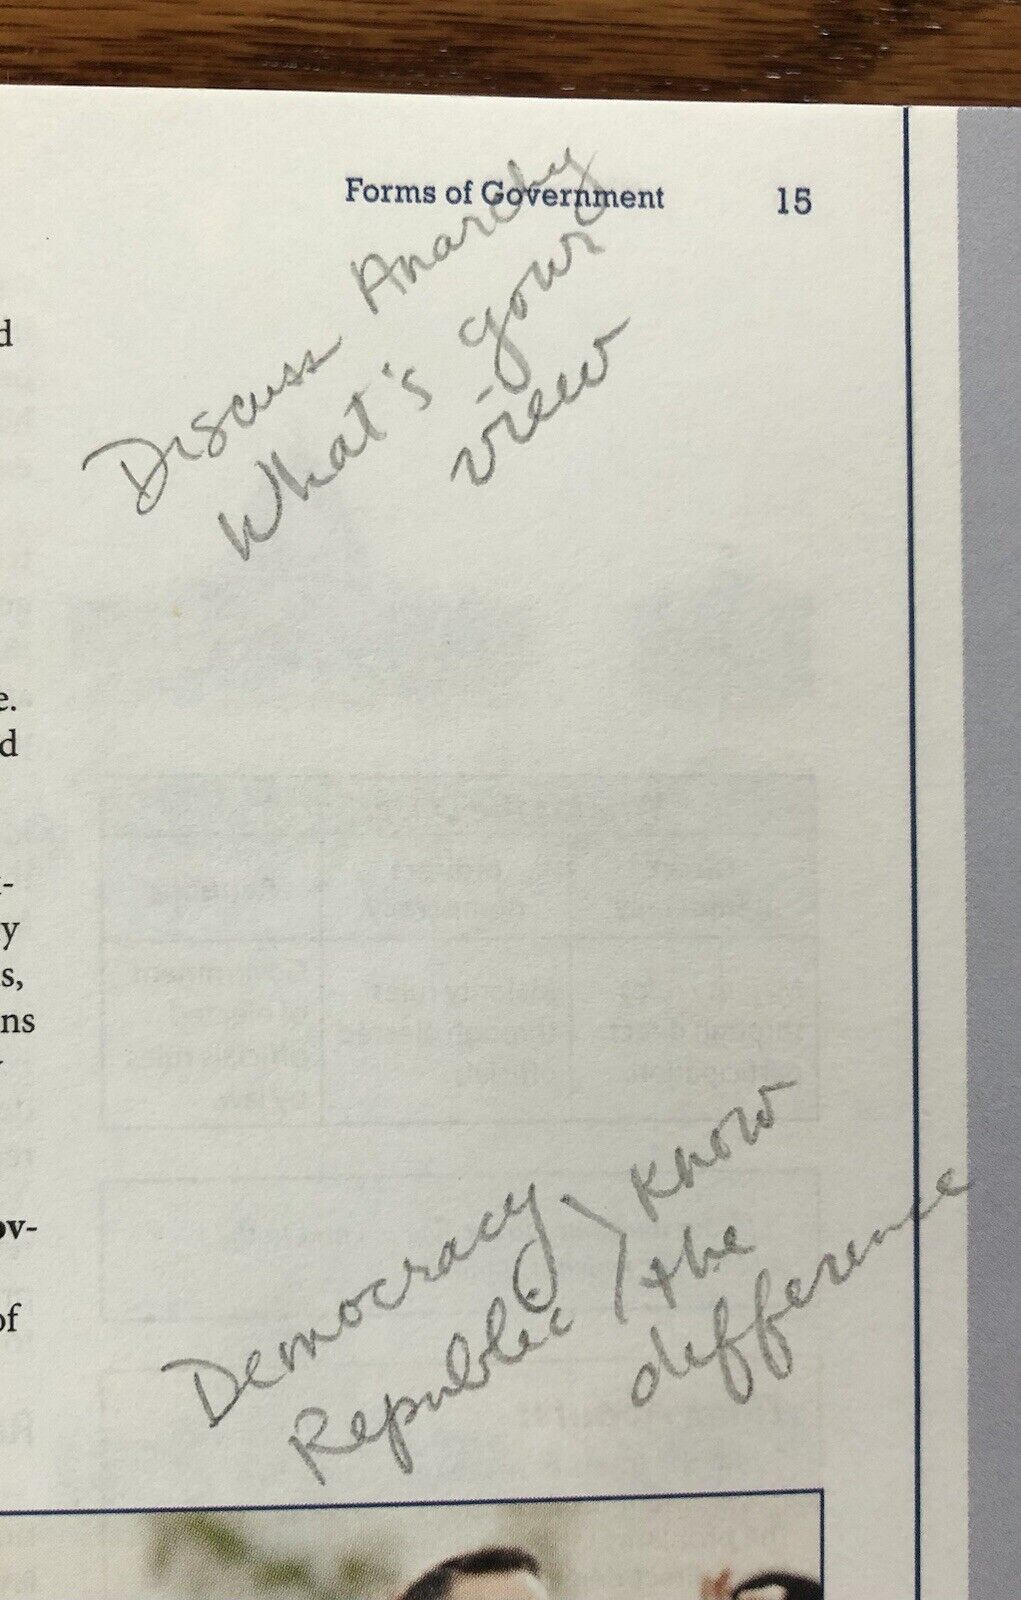 Forms of Government 15
Discuss Anarchy
What's your
view
d
e.
d
-
y
s,
ns
ov-
of
Democracy
Republic
Know
the
difference